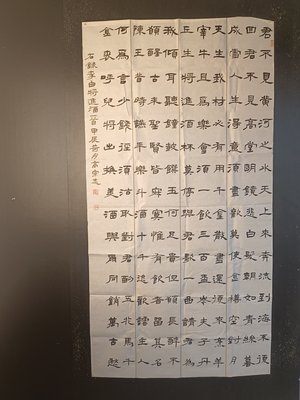 君不見黃河之水天上来奔流到海不復
回君不見高堂明鏡悲白髮朝如青絲暮
成雪人生得意須盡歡莫使金樽空對月
天生我材必有用千金散盡還復来烹羊
宰牛且為樂會須一飲三百盃岑夫子丹
丘生將進酒杯莫停與君歌一曲請君為
我傾耳聽鐘鼓饌玉何足貴但願長醉不
願醒古来聖賢皆寂寞惟有飲者留其名
陳王昔時宴平樂斗酒十千恣歡謔主人
何為言少錢徑須沽取對君酌五花馬千
金裘呼兒將出換美酒與爾同銷萬古愁
右錄李白將進酒一首甲辰